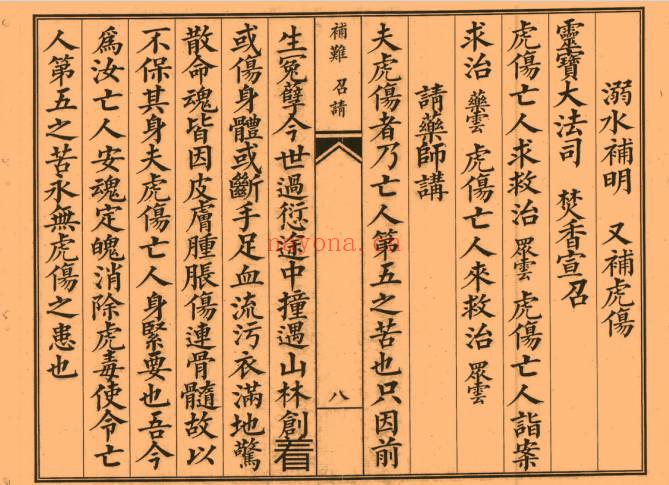 溺水補明　又補虎傷
靈寶大法司　焚香宣召
虎傷亡人求救治　眾雲　虎傷亡人詣案
求治　藥雲　虎傷亡人來救治　眾雲
請藥師講
夫虎傷者乃亡人第五之苦也只因前
補難　召請　八
生冤孽今世過愆途中撞遇山林創看
或傷身體或斷手足血流污衣滿地驚
散命魂皆因皮膚腫脹傷連骨髓故以
不保其身夫虎傷亡人身緊要也吾今
為汝亡人安魂定魄消除虎毒使令亡
人第五之苦永無虎傷之患也
nayona.cn